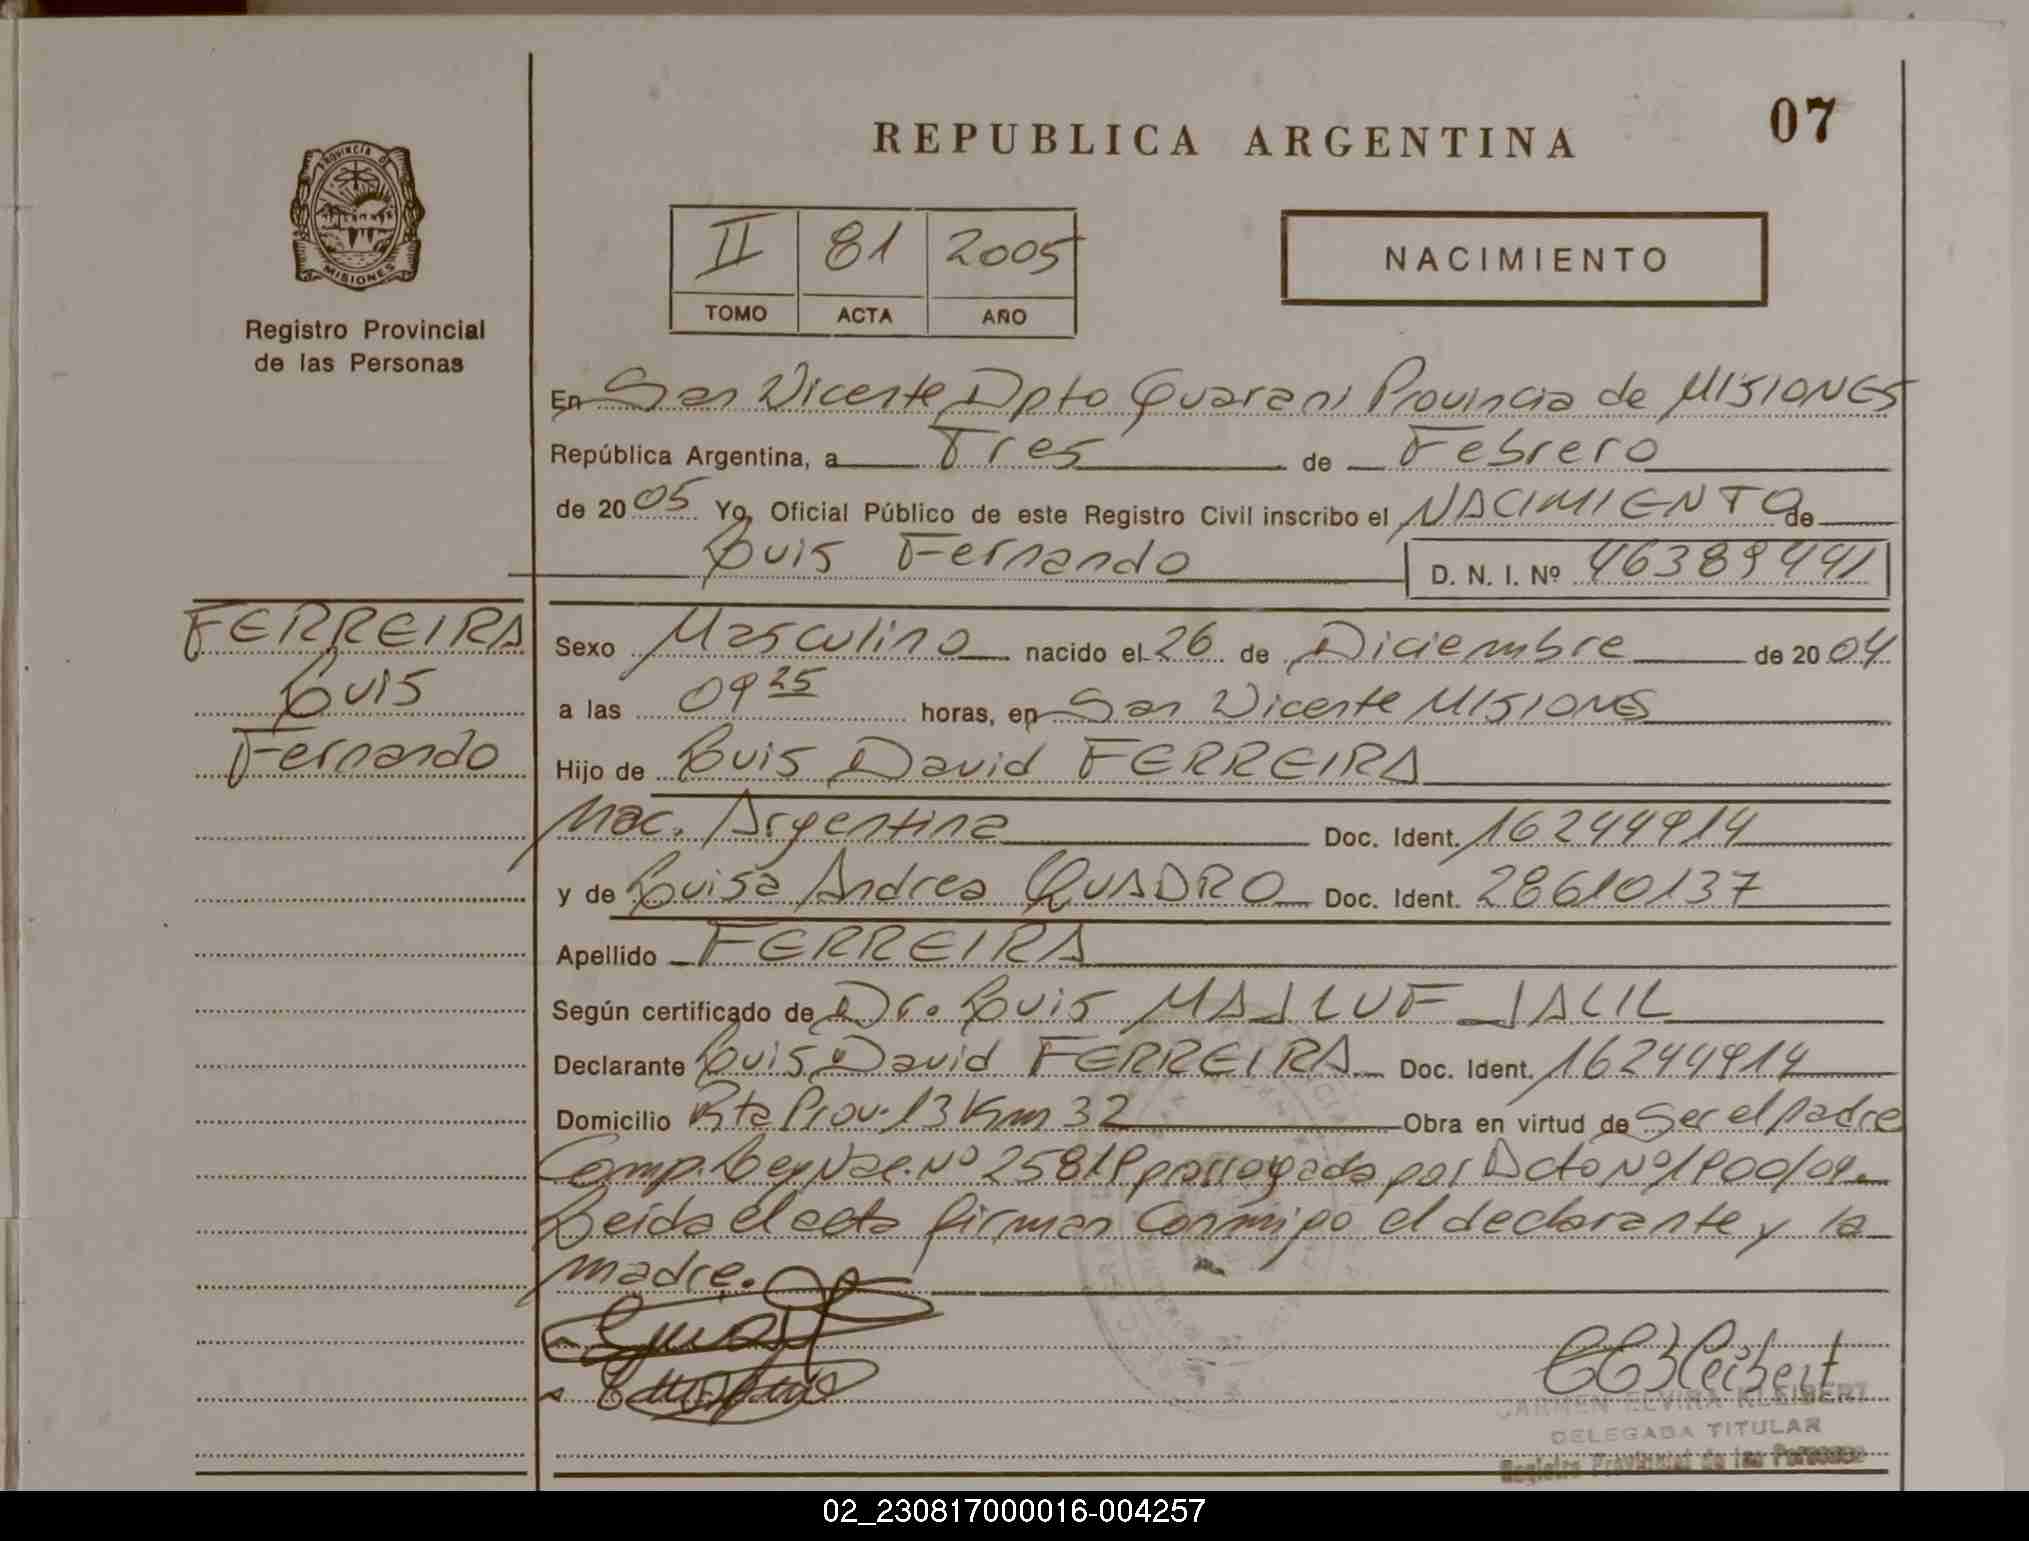 REPUBLICA ARGENTINA
07
PROVINCIA D
MISIONES
Registro Provincial
de las Personas
II 81 2005
TOMO ACTA AÑO
NACIMIENTO
En San Vicente Dpto Guarani Provincia de MISIONES
República Argentina, a Tres de Febrero
de 2005 Yo, Oficial Público de este Registro Civil inscribo el NACIMIENTO de
Luis Fernando D. N. I. Nº 46389441
FERREIRA
Luis
Fernando
Sexo Masculino nacido el 26 de Diciembre de 2004
a las 09 25 horas, en San Vicente MISIONES
Hijo de Luis David FERREIRA
Nac. Argentina Doc. Ident. 16244914
y de Luisa Andrea QUADRO Doc. Ident. 28610137
Apellido FERREIRA
Según certificado de Dr. Luis MAJLUF JALIL
Declarante Luis David FERREIRA Doc. Ident. 16244914
Domicilio Rta Prov. 13 Km 32 Obra en virtud de Ser el padre
Comp. Ley Nac. Nº 25819 prorrogada por Dcto Nº 1900/04.
Leída el acta firman Conmigo el declarante y la
madre.
CARMEN ELVIRA KLEIBERT
DELEGADA TITULAR
Registro Provincial de las Personas
02_230817000016-004257